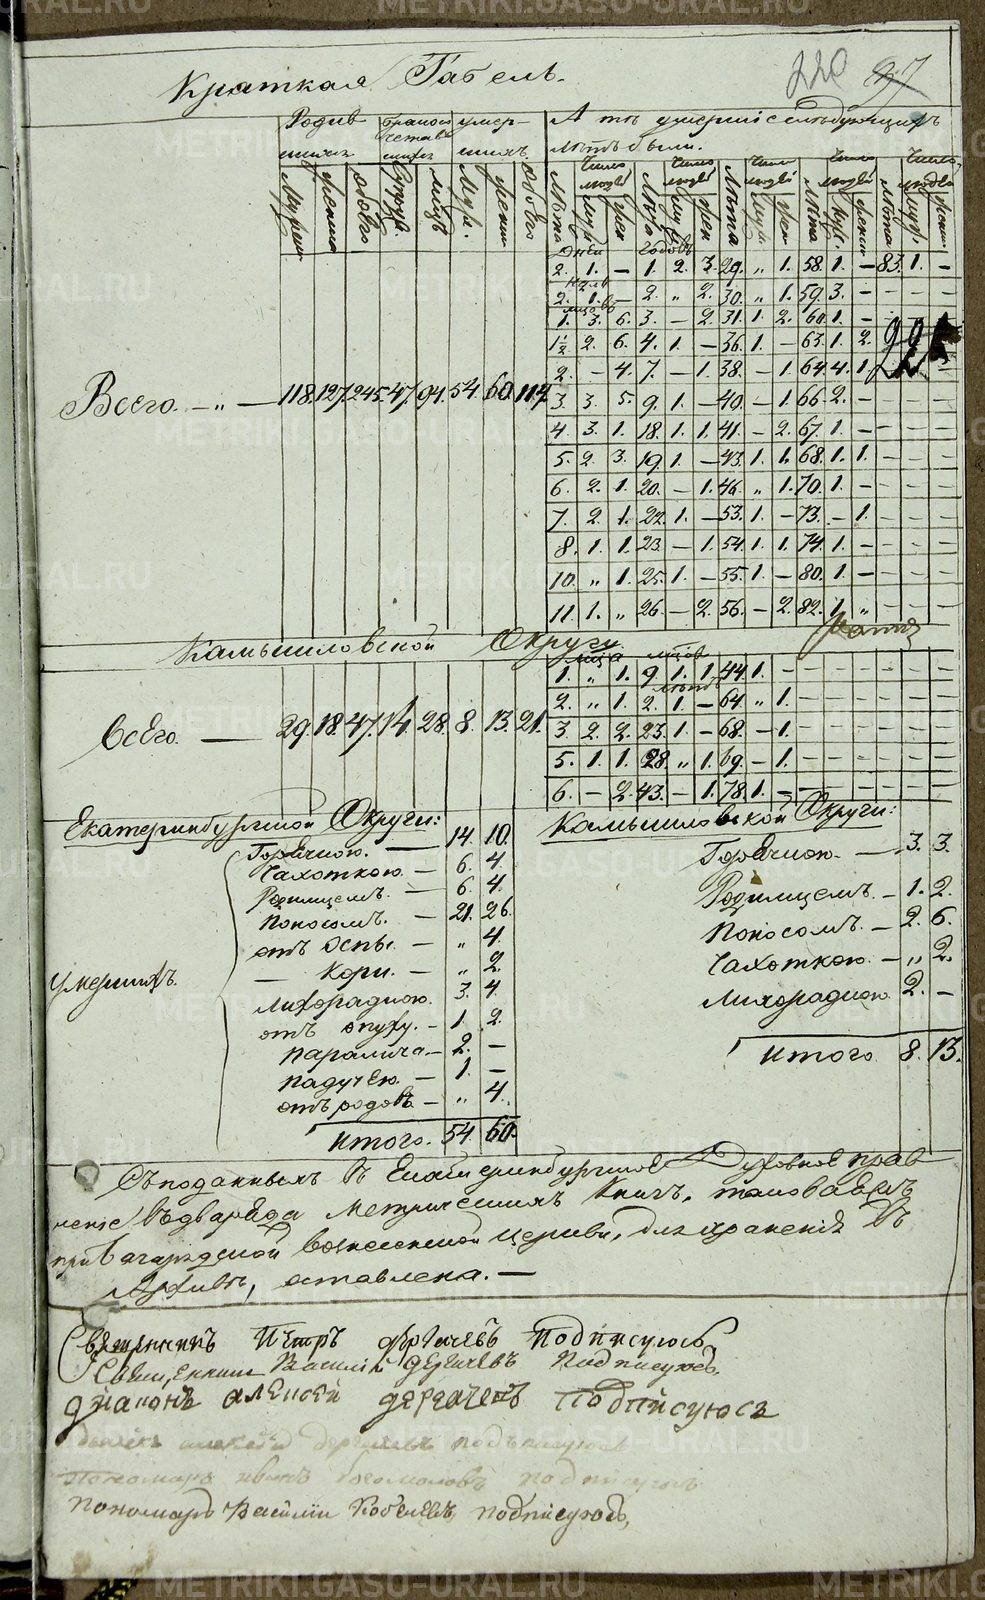 METRIKI.GASO-URAL.RU
Краткая Табель.
220
27
Родив
шихся
бракосо
четав
шихся
умер-
шихъ
А тѣ умершiе слѣдующихъ
лѣтъ были.
Число людей Число людей Число людей Число людей Число людей
Мужеска женска обоего Супруж. лицъ Муж. женск. обоего Лѣта муж жен Лѣта муж жен Лѣта муж. жен Лѣта муж. женск. Лѣта муж. женск.
дней годовъ
2. 1. – 1. 2. 3. 29. „ 1. 58. 1. – 83. 1. –
2. 1. – 2. „ 2. 30. „ 1. 59. 3. – – – –
1. 3. 6. 3. – 2. 31. 1. 2. 60. 1. – – – –
1½ 2. 6. 4. 1. – 36. 1. – 63. 1. 2.
2. – 4. 7. – 1. 38. – 1. 64. 4. 1.
Всего. – „ – 118. 127. 245. 47. 94. 54. 60. 114.
3. 3. 5. 9. 1. – 40. – 1. 66. 2. – – – –
4. 3. 1. 18. 1. 1. 41. – 2. 67. 1. – – – –
5. 2. 3. 19. 1. – 43. 1. 1. 68. 1. 1. – – –
6. 2. 1. 20. – 1. 46. „ 1. 70. 1. – – – –
7. 2. 1. 22. 1. – 53. 1. – 73. – 1. – – –
8. 1. 1. 23. – 1. 54. 1. 1. 74. 1. – – – –
10. „ 1. 25. 1. – 55. 1. – 80. 1. – – – –
11. 1. „ 26. – 2. 56. – 2. 82. 1. „ – – –
Камышловской Округи
мца мцов
1. „ 1. 9. 1. 1. 44. 1. – – – – – – –
лѣтъ
2. „ 1. 2. 1. – 64. „ 1. – – – – – –
Всего. — 29. 18. 47. 14. 28. 8. 13. 21.
3. 2. 2. 23. 1. – 68. – 1. – – – – – –
5. 1. 1. 28. „ 1. 69. – 1. – – – – – –
6. – 2. 43. – 1. 78. 1. – – – – – – –
Екатеринбургской Округи: Камышловской Округи:
Горячкою. — 14. 10. Горячкою. — 3. 3.
Чахоткою. – 6. 4.
Родимцемъ. – 6. 4. Родимцемъ. – 1. 2.
Поносомъ. – 21. 26. Поносомъ. – 2. 6.
отъ Оспы. – „ 4. Чахоткою. – „ 2.
— Кори. – „ 2.
умершихъ.
Лихорадкою. 3. 4. Лихорадкою. 2. –
отъ опуху. – 1. 2.
Паралича – 2. –
Итого. 8. 13.
Падучею. – 1. –
отъ родовъ – „ 4.
Итого. 54. 60.
Съ поданныхъ въ Екатеринбургское Духовное прав
ленiе въ метрическихъ Книгъ, таковаяжъ
при Вознесенской церкви, для храненiя въ
Архивъ, оставлена. —
Священникъ Петръ Дергачевъ Подписуюсь
Священникъ Василiй Дергачевъ Подписуюсь.
дiаконъ алексей дергачевъ подписуюсь
дьячекъ алексѣй дергачевъ подписуюсь
Пономарь иванъ богомоловъ подписуюсь
Пономарь Василiи Кобелевъ, подписуюсь,